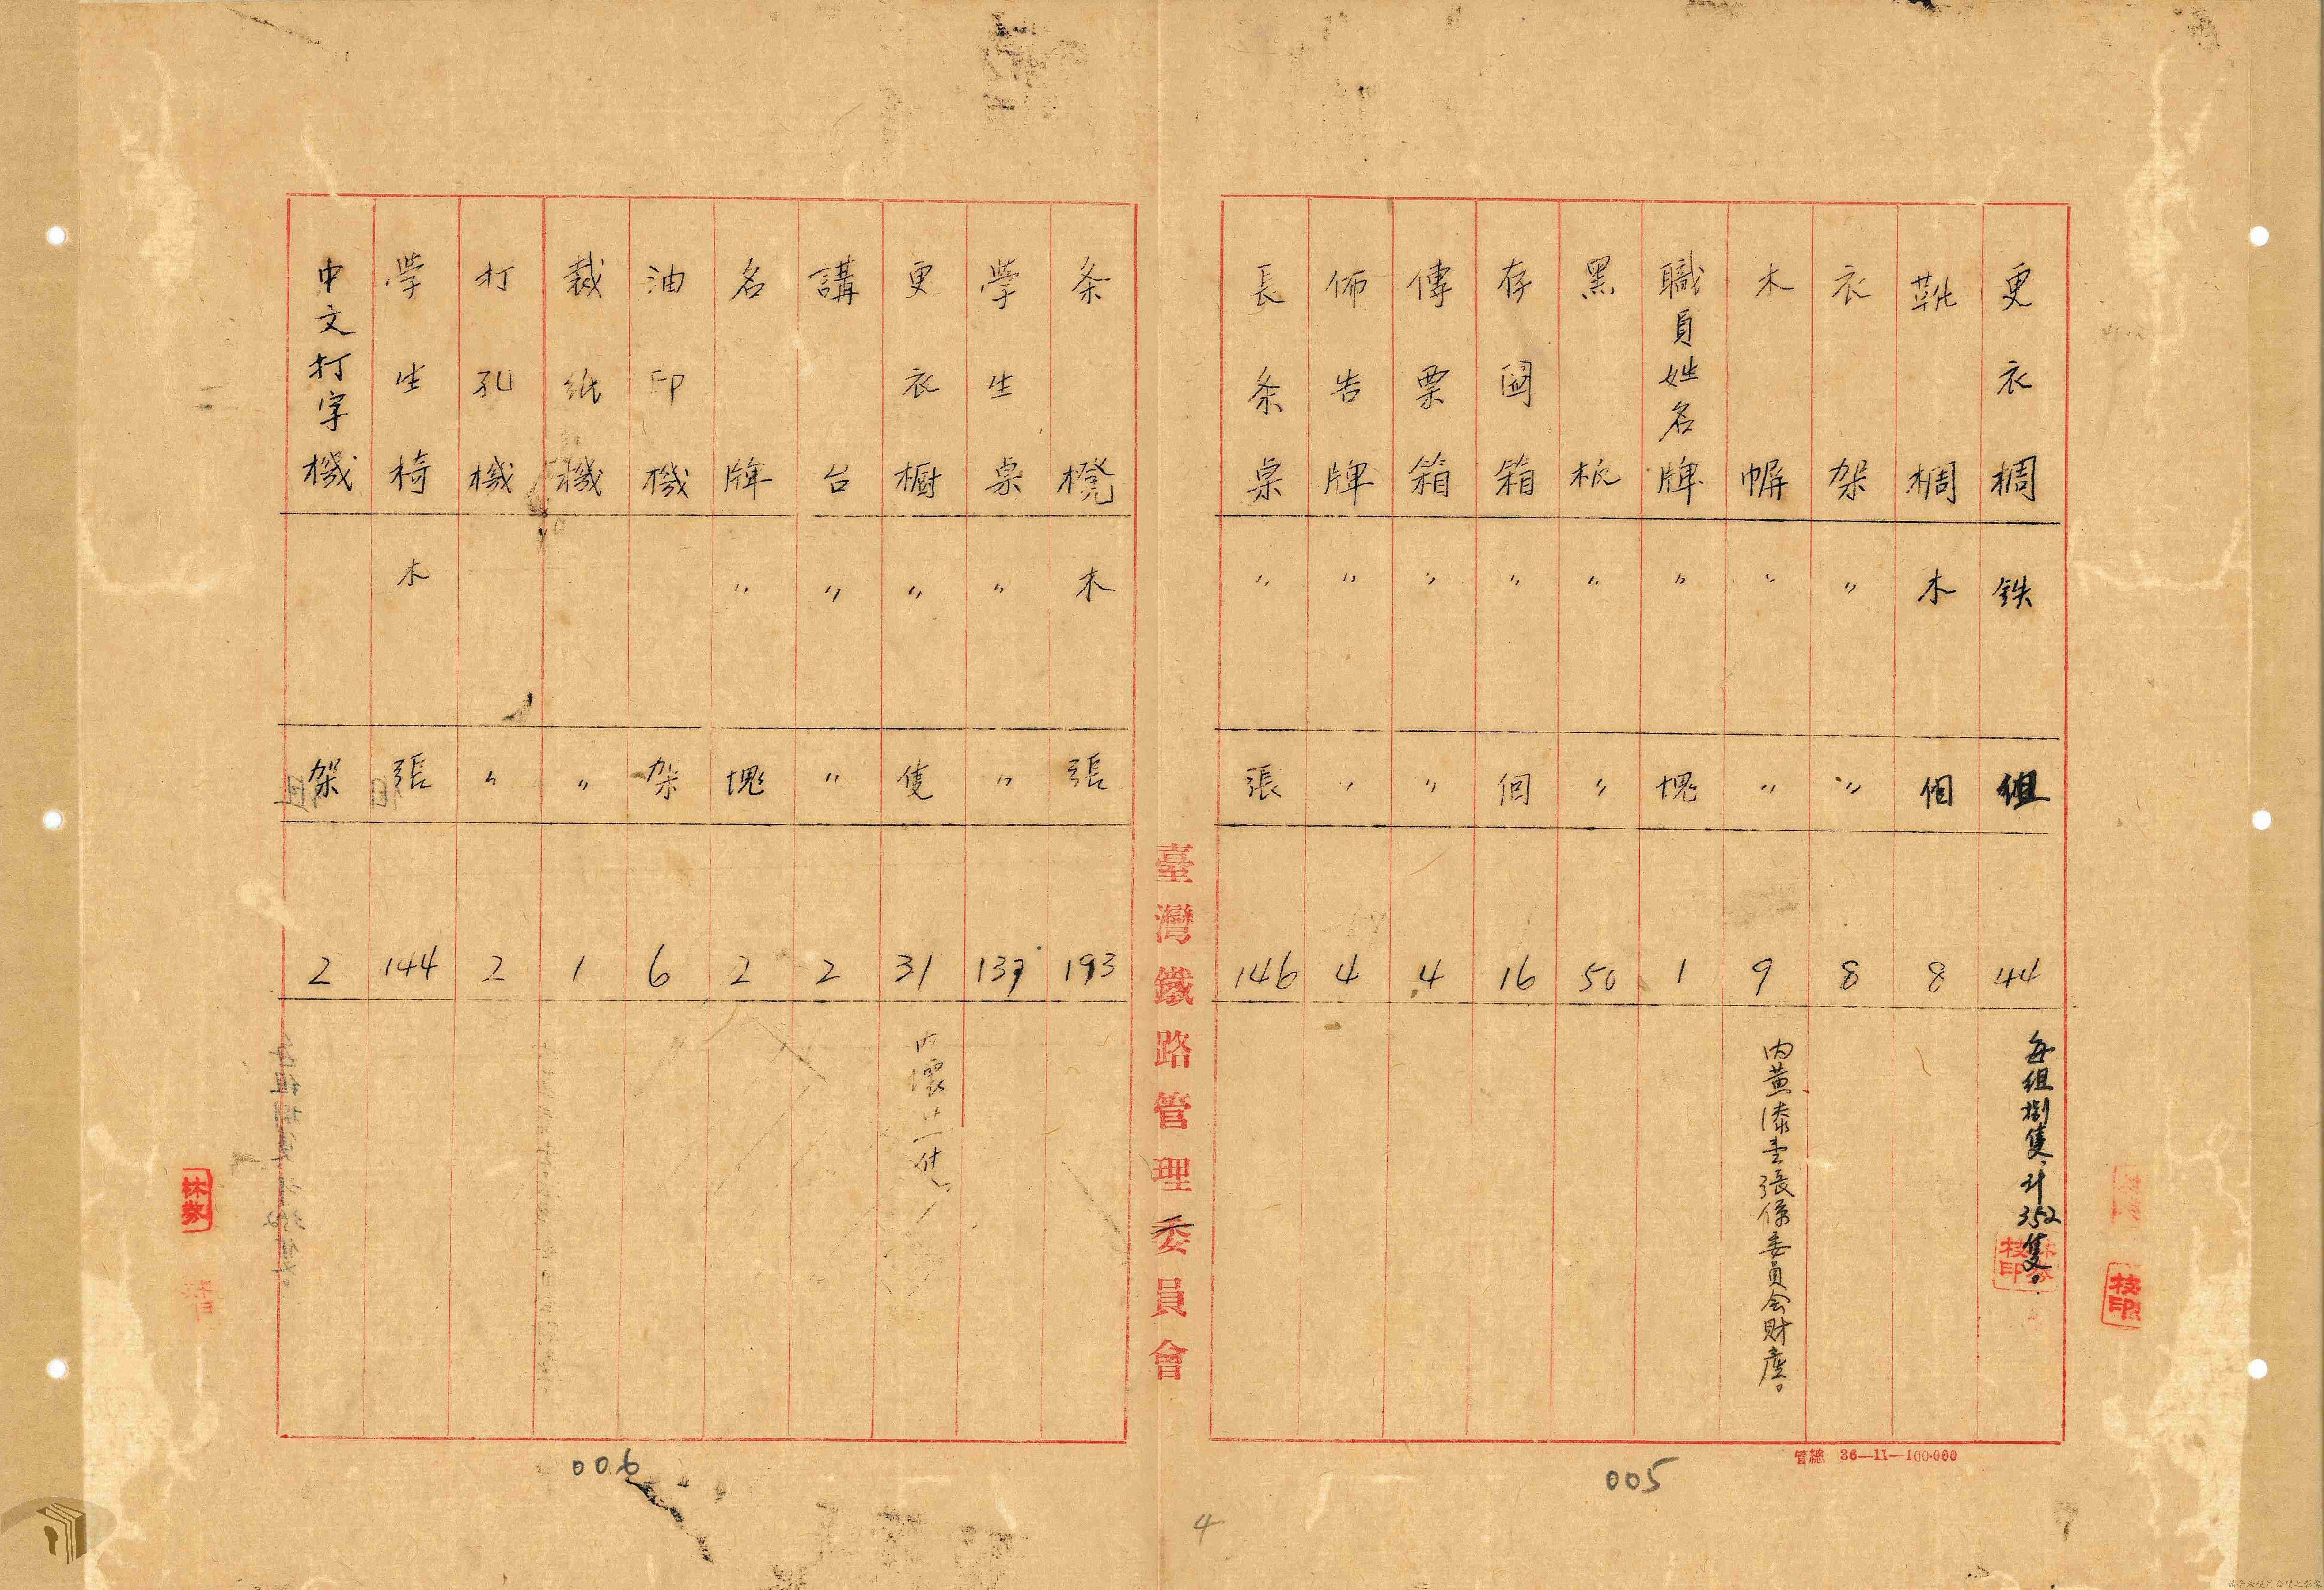 更衣椆 鉄 組 44 每組捌隻、計352隻。
靴椆 木 個 8
衣架 〃 〃 8
木幈 〃 〃 9 內黃漆壹張係委員会財產。
職員姓名牌 〃 塊 1
黑板 〃 〃 50
存図箱 〃 個 16
傳票箱 〃 〃 4
佈告牌 〃 〃 4
長条桌 〃 張 146
管總 36—11—100.000
005
臺灣鐵路管理委員會
4
条櫈 木 張 193
學生桌 〃 〃 137
更衣櫥 〃 隻 31
講台 〃 〃 2
名牌 〃 塊 2
油印機 架 6
裁紙機 〃 1
打孔機 〃 2
學生椅 木 張 144
中文打字機 架 2
006